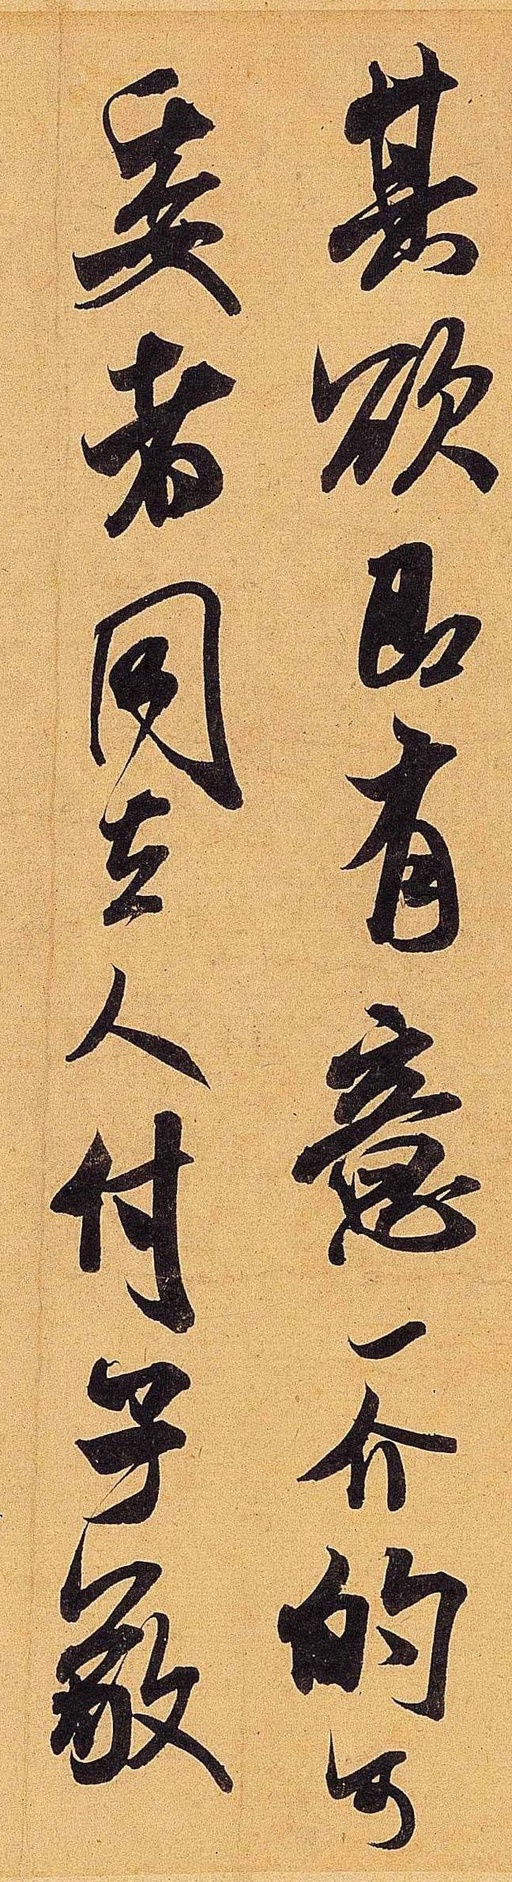 其欲即有意一介的可
委者同去人付子敬